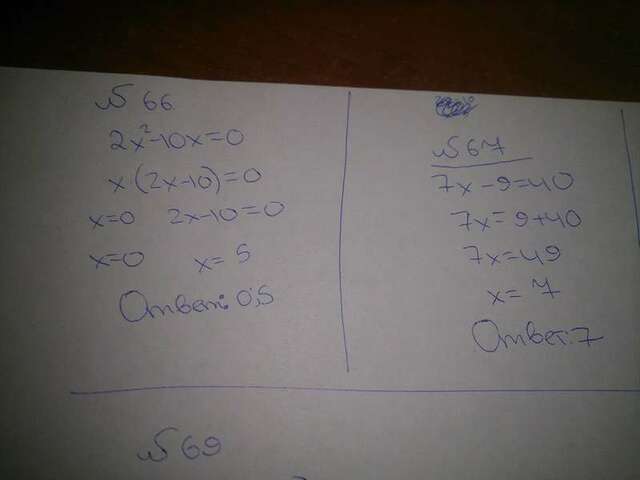 № 66
2x²-10x=0
x(2x-10)=0
x=0 2x-10=0
x=0 x=5
Ответ: 0;5
№67
7x-9=40
7x=9+40
7x=49
x=7
Ответ:7
№69